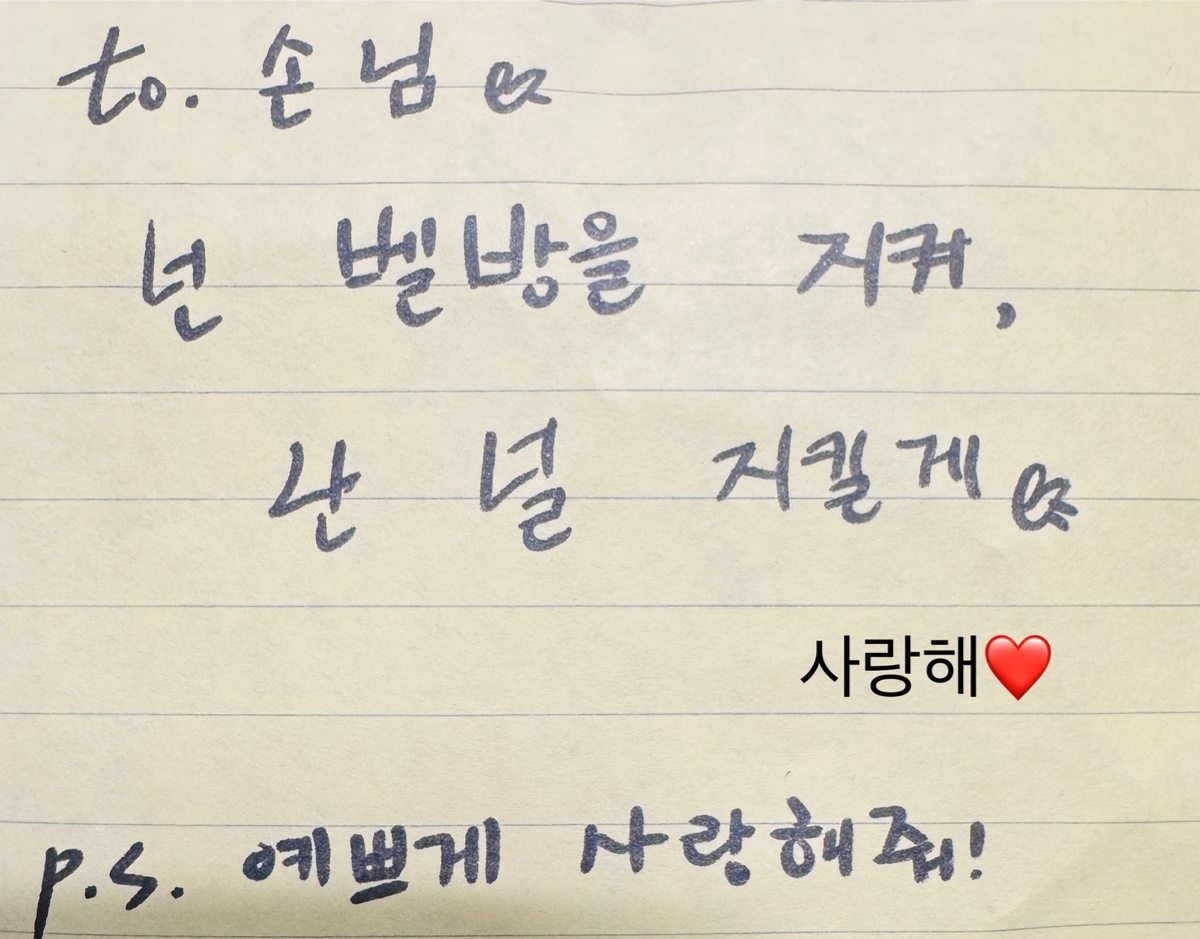 to. 손님
넌 벨방을 지켜,
난 널 지킬게
사랑해❤️
p.s. 예쁘게 사랑해줘!